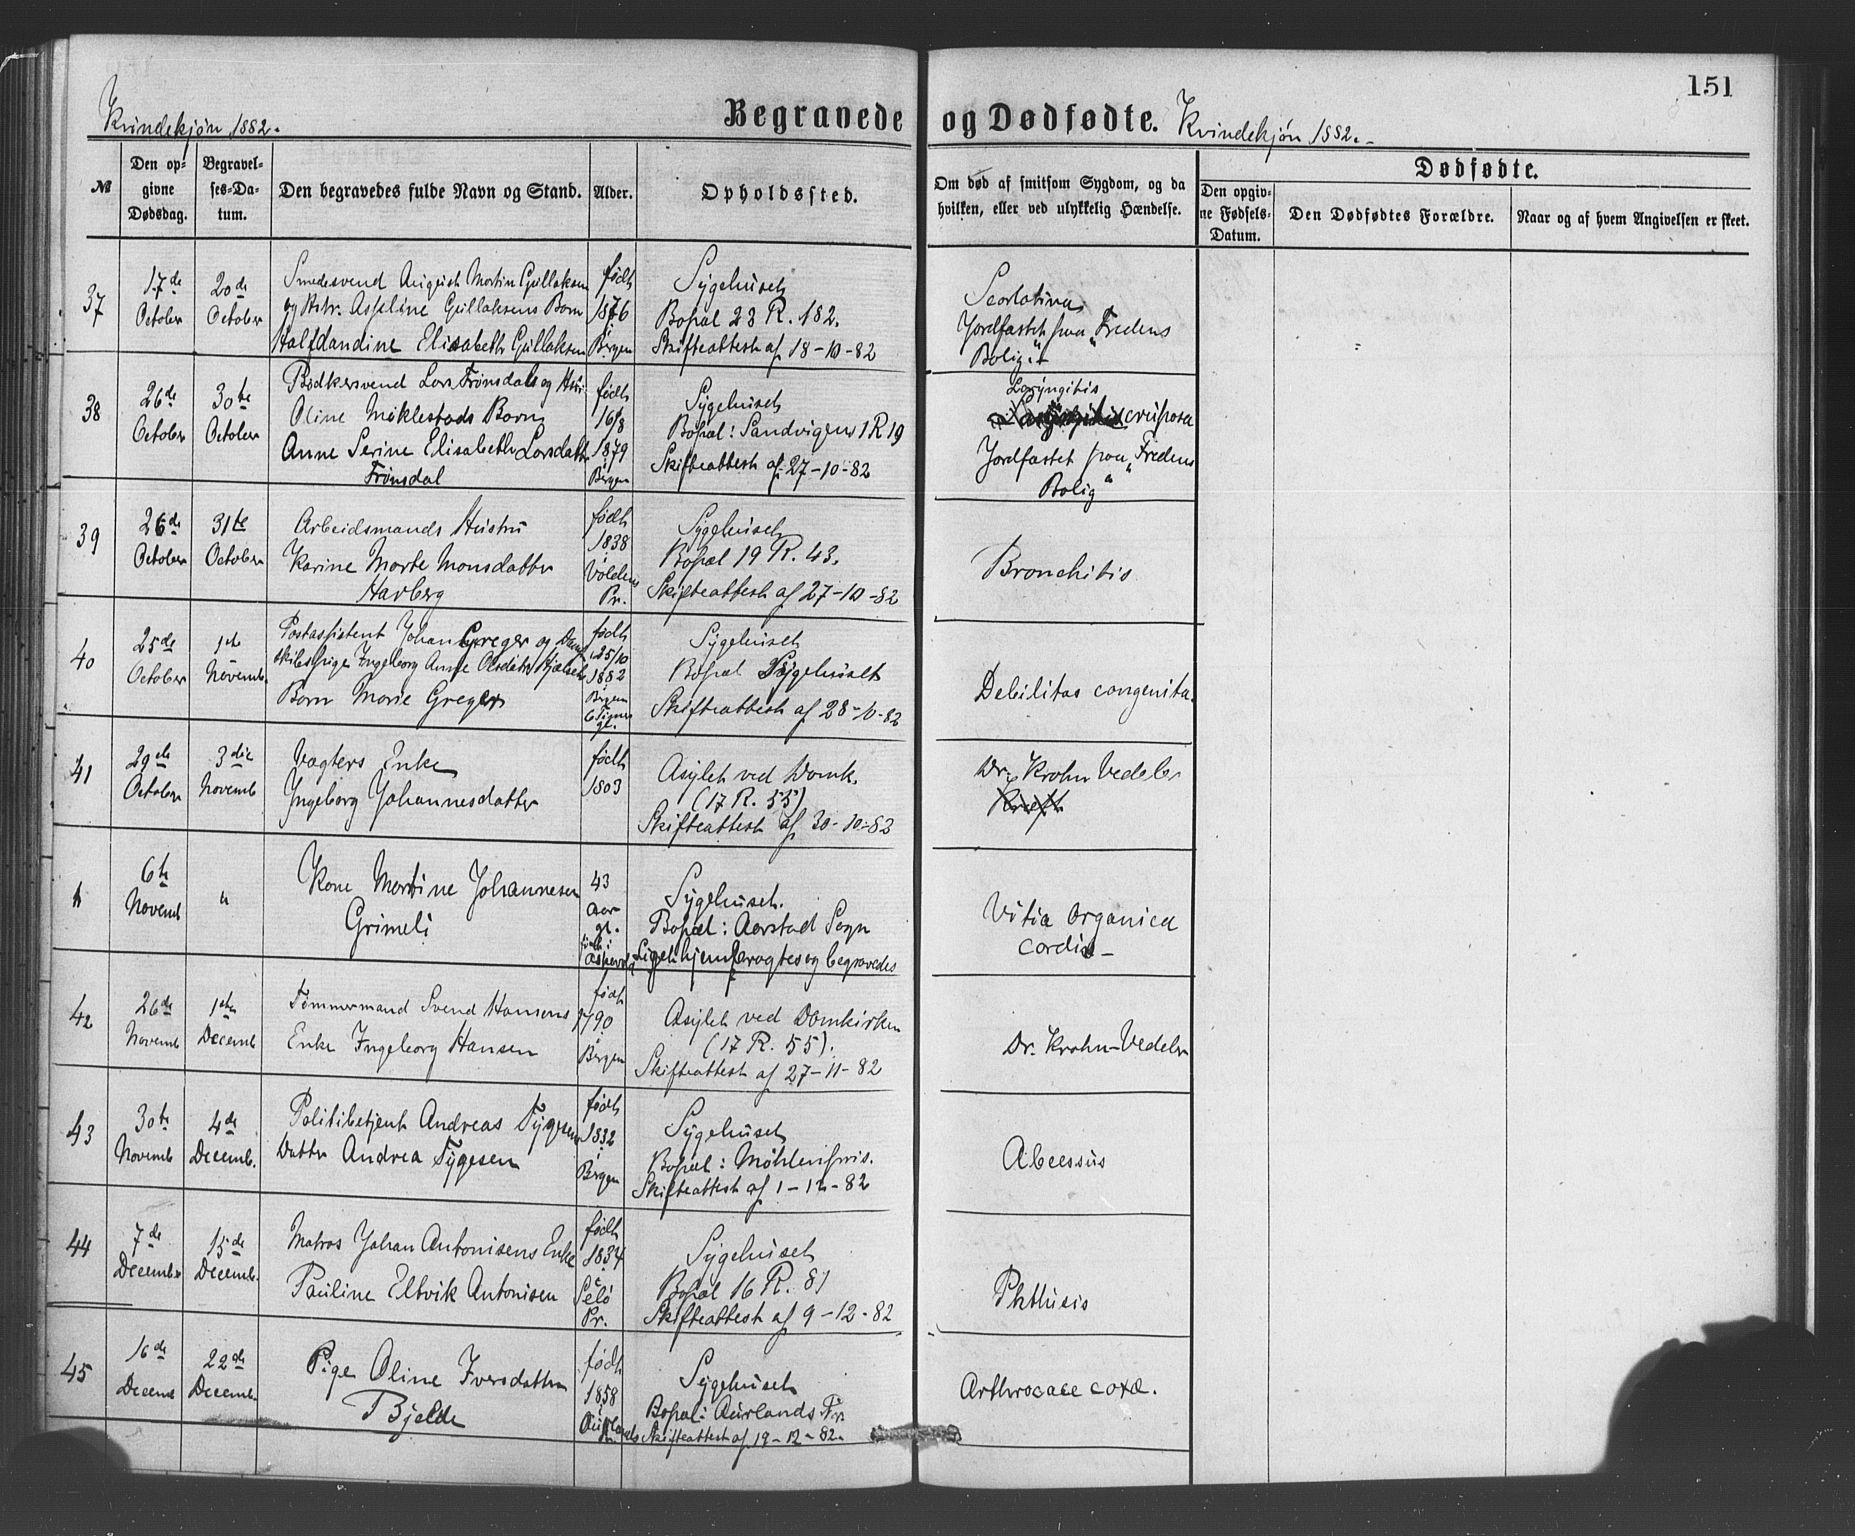 151
Kvindekjøn 1882.
Begravede og Dødfødte. Kvindekjøn 1882.
№
Den opgivne Dødsdag.
Begravelses-Datum.
Den begravedes fulde Navn og Stand.
Alder.
Opholdssted.
Om død af smitsom Sygdom, og da hvilken, eller ved ulykkelig Hændelse.
Dødfødte.
Den opgivne Fødsels-Datum.
Den Dødfødtes Forældre.
Naar og af hvem Angivelsen er skeet.
37
17de October
20de October
Smedesvend August Martin Gullaksen
og Hstr. Asseline Gullaksens Barn
Halfdandine Elisabeth Gullaksen
født 1876 i Bergen
Sygehuset
Bopæl 23 R. 182.
Skifteattest af 18-10-82
Scarlatina
Jordfæstet paa "Fredens
Bolig".
38
26de October
30te October
Bødkersvend Lars Frønsdals og Hstr.
Oline Miklestads Barn
Anne Serine Elisabeth Larsdatter
Frønsdal
født 16/8 1879 i Bergen
Sygehuset
Bopæl: Sandvigens 1 R 19
Skifteattest af 27-10-82
Laryngitis
cruposa
Jordfæstet paa "Fredens
Bolig"
39
26de October
31te October
Arbeidsmands Hustru
Karine Marte Monsdatter
Havberg
født 1838 i Voldens Pr.
Sygehuset
Bopæl 19 R. 43.
Skifteattest af 27-10-82
Bronchitis
40
25de October
1ste Novemb.
Postassistent Johan Greger og
Pige Ingeborg Anne
Barn Marie Greger
født 25/10 1882 i Bergen 6 Timer gl.
Sygehuset
Bopæl Sygehuset
Skifteattest af 28-10-82
Debilitas congenita.
41
29de October
3die Novemb
Vægters Enke
Ingeborg Johannesdatter
født 1803
Asylet ved Domk.
(17 R. 55)
Skifteattest af 30-10-82
Dr. Krohn Vedeler
6te Novemb
"
Kone Martine Johannesen
Grimeli
43 Aar gl. født i
Sygehuset.
Bopæl: Aarstad Sogn
Liget hjembragtes og begravedes
Vitia organica
cordis
42
26de Novemb
1ste Decemb
Tømmermand Svend Hansens
Enke Ingeborg Hansen
født 1790 i Bergen
Asylet ved Domkirken
(17 R. 55).
Skifteattest af 27-11-82
Dr. Krohn-Vedeler
43
30te Novemb
4de Decemb.
Politibetjent Andreas Tygesens
Datter Andrea Tygesen
født 1832 i Bergen
Sygehuset
Bopæl: Møhlenpris.
Skifteattest af 1-12-82
Abcessus
44
7de Decembr
15de Decemb.
Matros Johan Antonisens Enke
Pauline Eltvik Antonisen
født 1834 i Selø Pr.
Sygehuset
Bopæl 16 R. 81
Skifteattest af 9-12-82
Phthisis
45
16de Decemb
22de Decemb.
Pige Oline Iversdatter
Bjelde
født 1858 i Aurlands
Sygehuset
Bopæl: Aurlands Pr.
Skifteattest af 19-12-82.
Arthrocace coxæ.